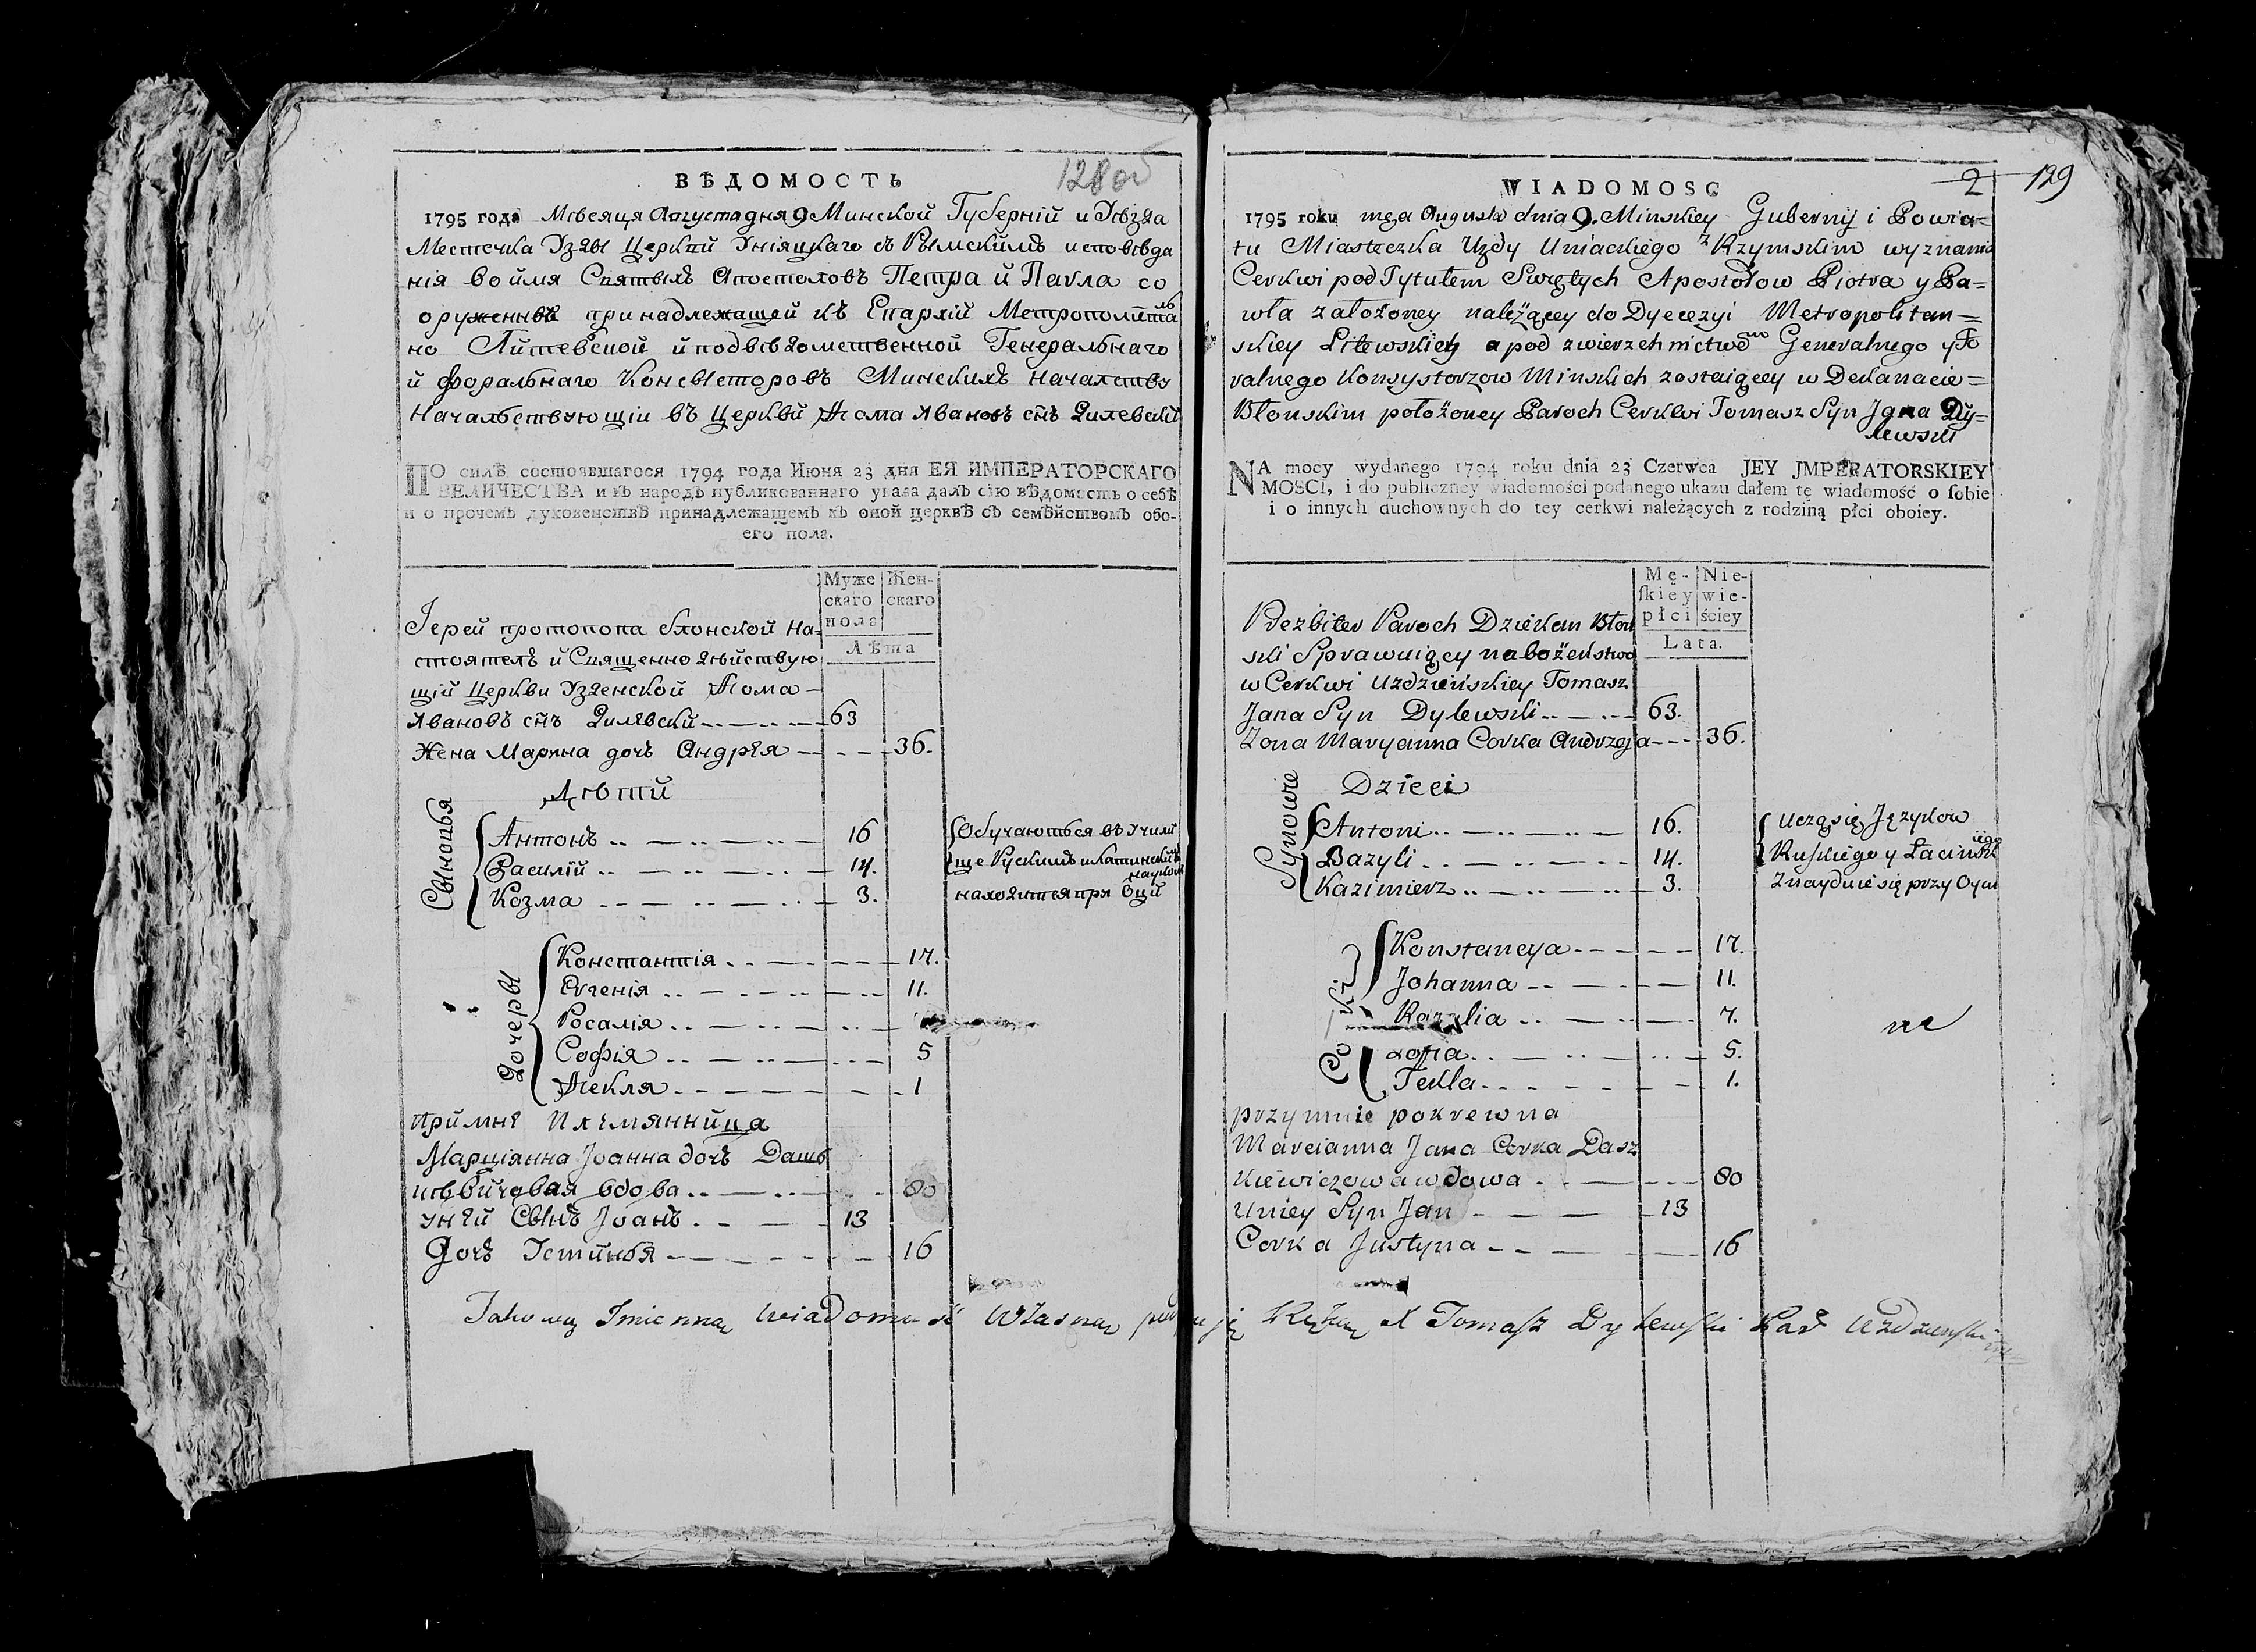 128 об
ВѢДОМОСТЬ
1795 года Мѣсяца Августа дня 9 Минской Губерній и Уѣзда
Местечка Узды Церквй Уніяцкаго съ Рымскимъ исповѣда
нія во ймя Святыхъ Апостоловъ Петра й Павла со
оруженнѣ принадлежащей къ Епархій Метрополита
но Литевской й подвѣдомственной Генеральнаго
й форальнаго Консысторовъ Минскихъ началству
Началствующіи въ Церквй Ѳома Ивановъ сн̃ъ Дилевскій
ПО силѣ состоявшагося 1794 года Июня 23 дня ЕЯ ИМПЕРАТОРСКАГО
ВЕЛИЧЕСТВА и въ народъ публикованнаго указа далъ сію вѣдомость о себѣ
и о прочемъ духовенствѣ принадлежащемъ къ оной церквѣ съ семѣйствомъ обо-
его пола.
Муже Жен-
скаго скаго
пола
Лѣта
Іерей протопопа блонской На-
стоятелъ й Священнодѣйствую
щій Церкви Узденской Ѳома
Ивановъ сн̃ъ Дилевскй 63
Жена Марина дочъ Андрея 36.
Дѣти
Сыновья
Антонъ 16 Обучаються въ Учили
Василій 14. ще Рускимъ и Латинскимъ
наукам
Козма 3. находится при Отцй
Дочеры
Константія 17.
Евгенія 11.
Росалія
Софія 5
Ѳекля 1
прймне Племяннйца
Марціянна Іоанна дочъ Дашъ
кѣвйчовая вдова 80
унѣй Сынъ Іоанъ 13
Дочъ Істйнья 16
2 129
WIADOMOSC
1795 roku mca Augusta dnia 9. Minskiey Guberny i Powia=
tu Miasteczka Uzdy Uniackiego z Rzymskim wyznania
Cerkwi pod Tytułem Swętych Apostołow Piotra y Pa=
wła założoney należącey do Dyecezyi Metropolitan=
skiey Litewskiey a pod zwierzchnictwem Generalnego y Fo
ralnego Konsystorzow Minskich zostaiącey w Dekanacie=
Błonskim położoney Paroch Cerkwi Tomasz Syn Jana Dy=
lewski
NA mocy wydanego 1794 roku dnia 23 Czerwca JEY JMPERATORSKIEY
MOSCI, i do publiczney wiadomości podanego ukazu dałem tę wiadomość o sobie
i o innych duchownych do tey cerkwi należących z rodziną płci oboiey.
Mę- Nie-
skiey wie-
płci ściey
Lata.
Prezbiter Paroch Dziekan Błon
ski Sprawuiącey nabożeństwo
w Cerkwi Uzdzieńskiey Tomasz
Jana Syn Dylewski 63.
Zona Maryanna Corka Andrzeja 36.
Dzieci
Synowie
Antoni 16. Uczą się Językow
Bazyli 14. Ruskiego y Łacinskiego
Kazimierz 3. Znayduie się przy Oycu
Corki
Konstancya 17.
Johanna 11.
Rozalia 7.
Zofia 5.
Tekla 1.
przy mnie pokrewna
Marcianna Jana Corka Dasz
kiewiczowa wdowa 80
Uniey Syn Jan 13
Corka Justyna 16
Takową Imienną Wiadomość Własną podpisuję Ręką X Tomasz Dylewski Par Uzdzenski